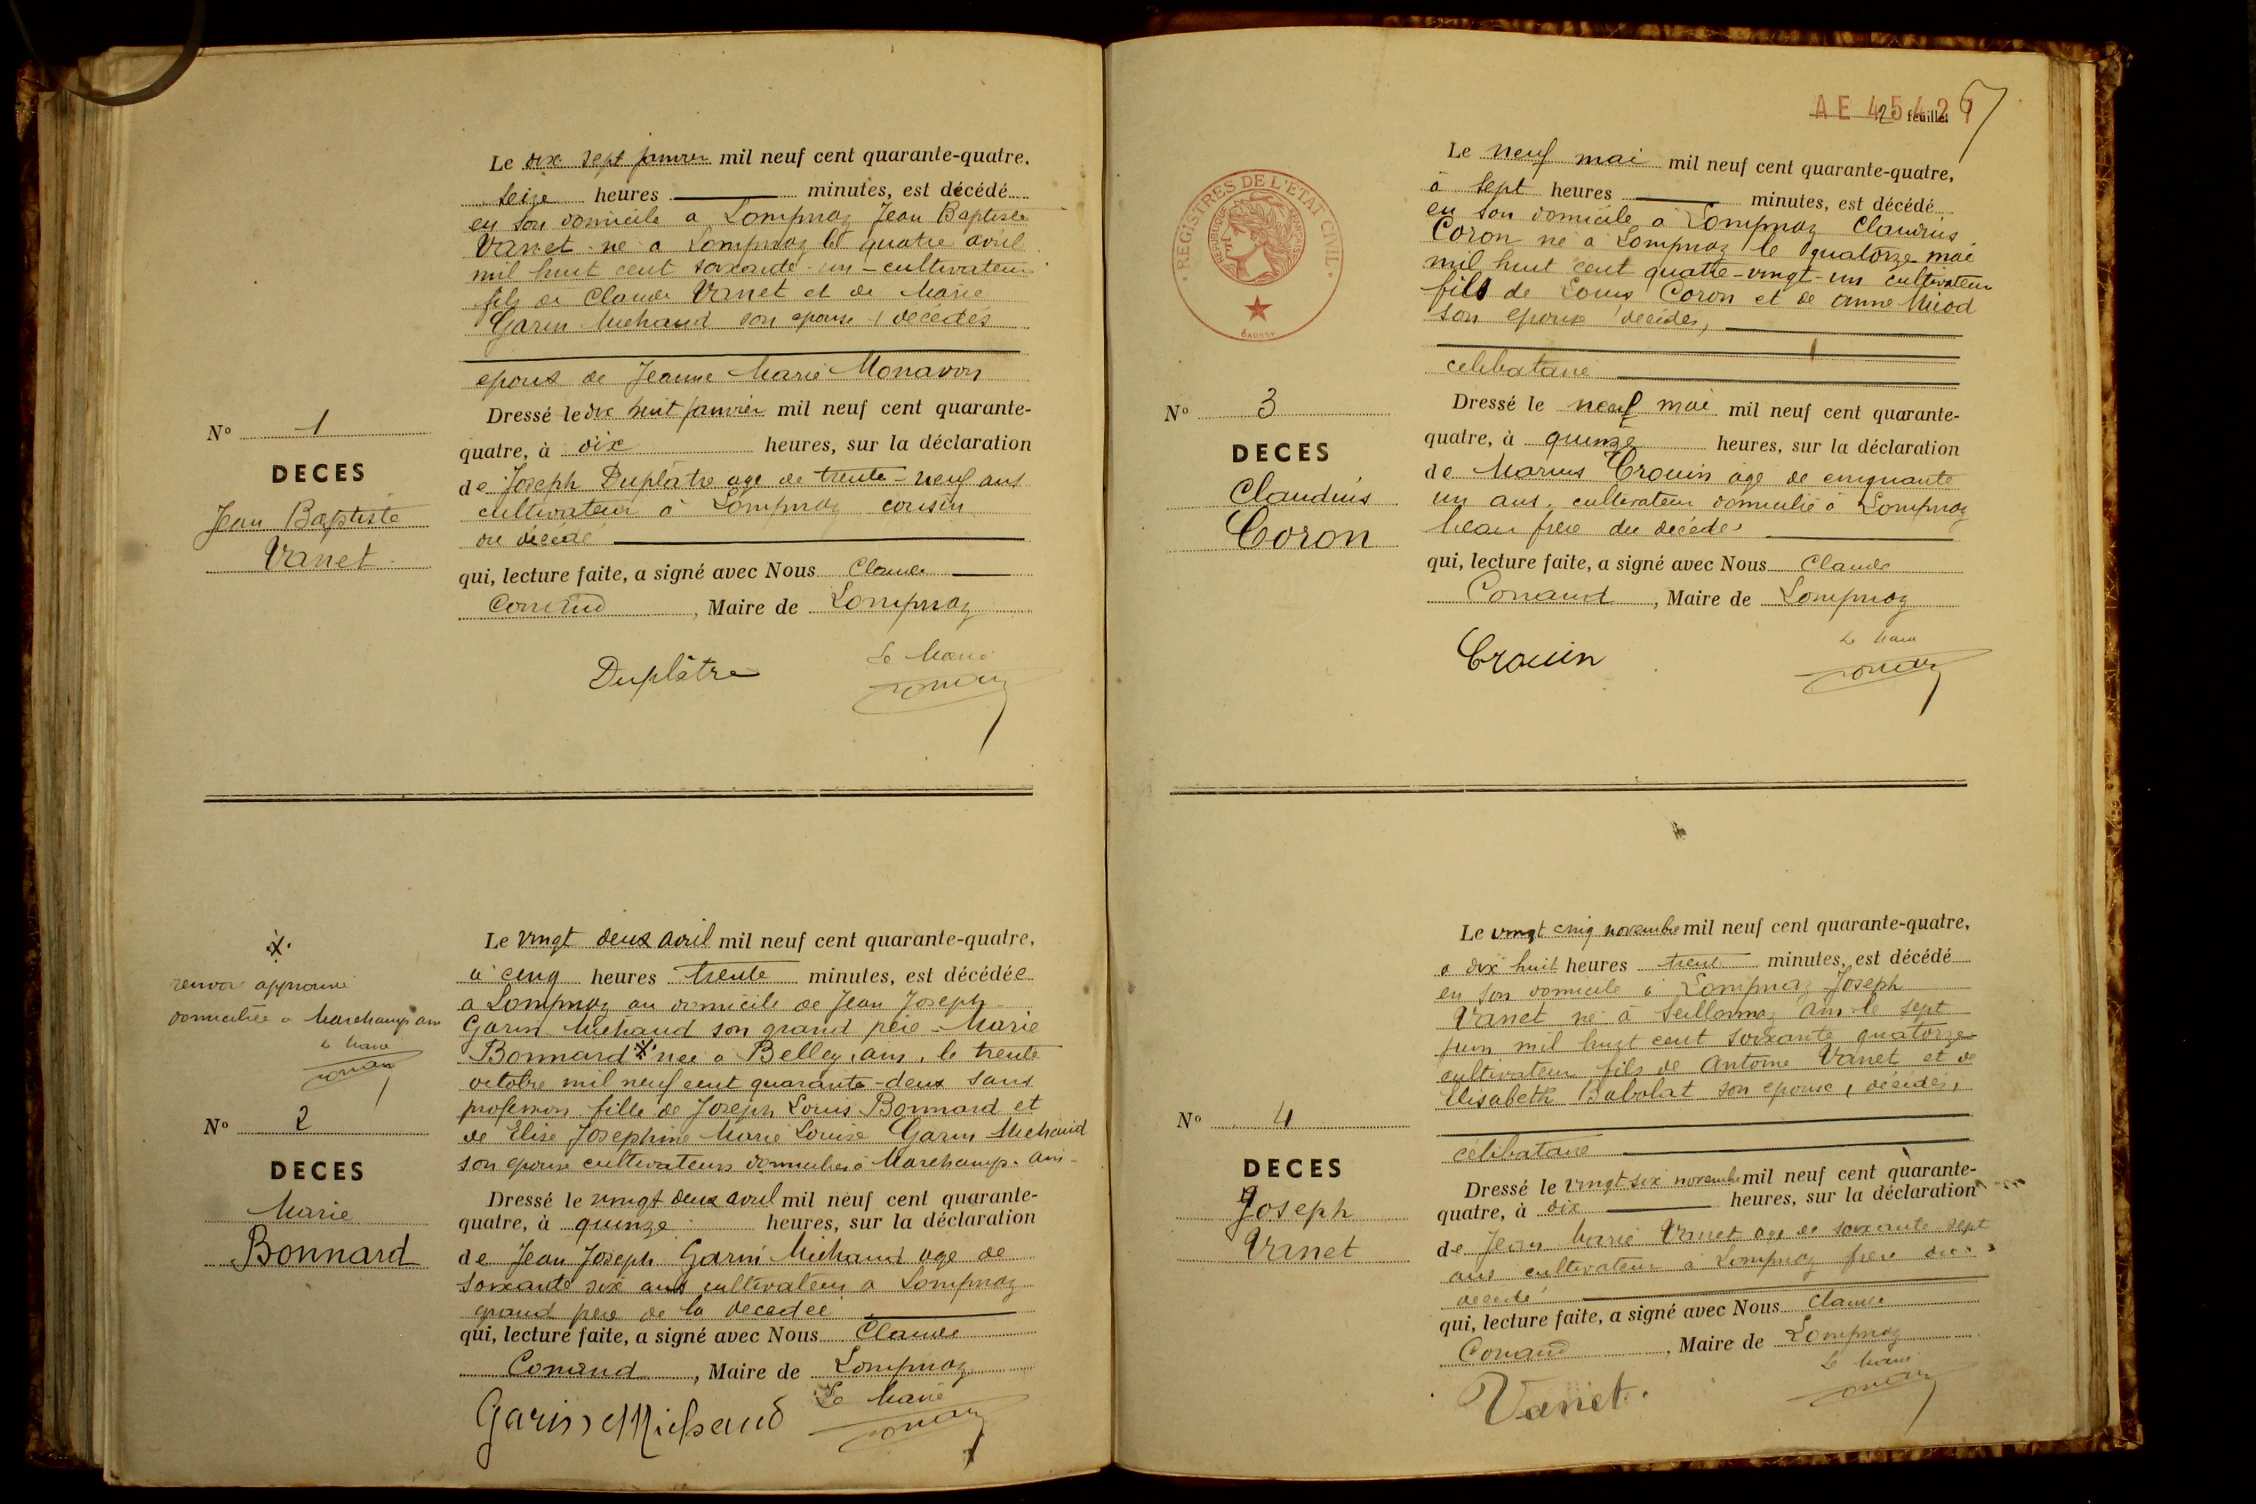 Le dix sept janvier mil neuf cent quarante-quatre,
seize heures minutes, est décédé
en son domicile a Lompnaz Jean Baptiste
Vanet né a Lompnaz le quatre avril
mil huit cent soixante-un-cultivateur
fils de Claude Vanet et de Marie
Garin Michaud son epouse, décédés
epoux de Jeanne Marie Monavon
Dressé le dix huit janvier mil neuf cent quarante-
quatre, à dix heures, sur la déclaration
de Joseph Duplâtre age de trente-neuf ans
cultivateur à Lompnaz cousin
du décédé
qui, lecture faite, a signé avec Nous Claude
Conand, Maire de Lompnaz
Duplâtre
Le Maire
Conand
N° 1
DECES
Jean Baptiste
Vanet
Le vingt deux avril mil neuf cent quarante-quatre,
à cinq heures trente minutes, est décédée
a Lompnaz au domicile de Jean Joseph
Garin Michaud son grand père - Marie
Bonnard x née a Belley, ain, le trente
octobre mil neuf cent quarante-deux sans
profession fille de Joseph Louis Bonnard et
de Elise Josephine Marie Louise Garin Michaud
son epouse cultivateurs domiciliés à Marchamp. ain-
Dressé le vingt deux avril mil neuf cent quarante-
quatre, à quinze heures, sur la déclaration
de Jean Joseph Garin Michaud age de
soixante six ans cultivateur a Lompnaz
grand père de la décédée
qui, lecture faite, a signé avec Nous Claude
Conand, Maire de Lompnaz
Garin Michaud
Le Maire
Conand
x
renvoi approuvé
domiciliée a Marchamp ain
Le Maire
Conand
N° 2
DECES
Marie
Bonnard
AE 45427
2 feuillet
REGISTRES DE L'ETAT CIVIL
REPUBLIQUE FRANÇAISE
Le neuf mai mil neuf cent quarante-quatre,
à sept heures minutes, est décédé
en son domicile a Lompnaz Claudius
Coron né à Lompnaz le quatorze mai
mil huit cent quatre-vingt-un cultivateur
fils de Louis Coron et de Anne Miod
son epouse décédés,
celibataire
Dressé le neuf mai mil neuf cent quarante-
quatre, à quinze heures, sur la déclaration
de Marius Crouin âgé de cinquante
un ans, cultivateur domicilié à Lompnaz
beau frère du décédé
qui, lecture faite, a signé avec Nous Claude
Conand, Maire de Lompnaz
Crouin
Le Maire
Conand
N° 3
DECES
Claudius
Coron
Le vingt cinq novembre mil neuf cent quarante-quatre,
a dix huit heures trente minutes, est décédé
en son domicile à Lompnaz Joseph
Vanet né à Seillonnaz Ain le sept
juin mil huit cent soixante quatorze
cultivateur fils de Antoine Vanet et de
Elisabeth Babolat son epouse, décédés,
célibataire
Dressé le vingt six novembre mil neuf cent quarante-
quatre, à dix heures, sur la déclaration
de Jean Marie Vanet age de soixante sept
ans cultivateur à Lompnaz frère du
décédé
qui, lecture faite, a signé avec Nous Claude
Conand, Maire de Lompnaz
Vanet
Le Maire
Conand
N° 4
DECES
Joseph
Vanet